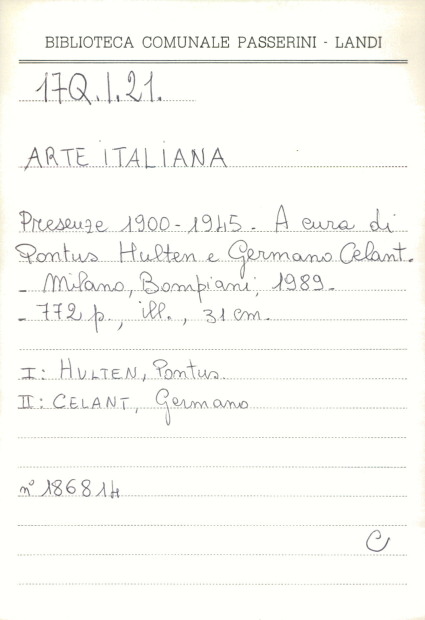 BIBLIOTECA COMUNALE PASSERINI - LANDI
17Q.I.21.
ARTE ITALIANA
Presenze 1900-1945. A cura di
Pontus Hulten e Germano Celant.
- Milano, Bompiani, 1989.
- 772 p., ill., 31 cm.
I: HULTEN, Pontus.
II: CELANT, Germano
n° 186814
C